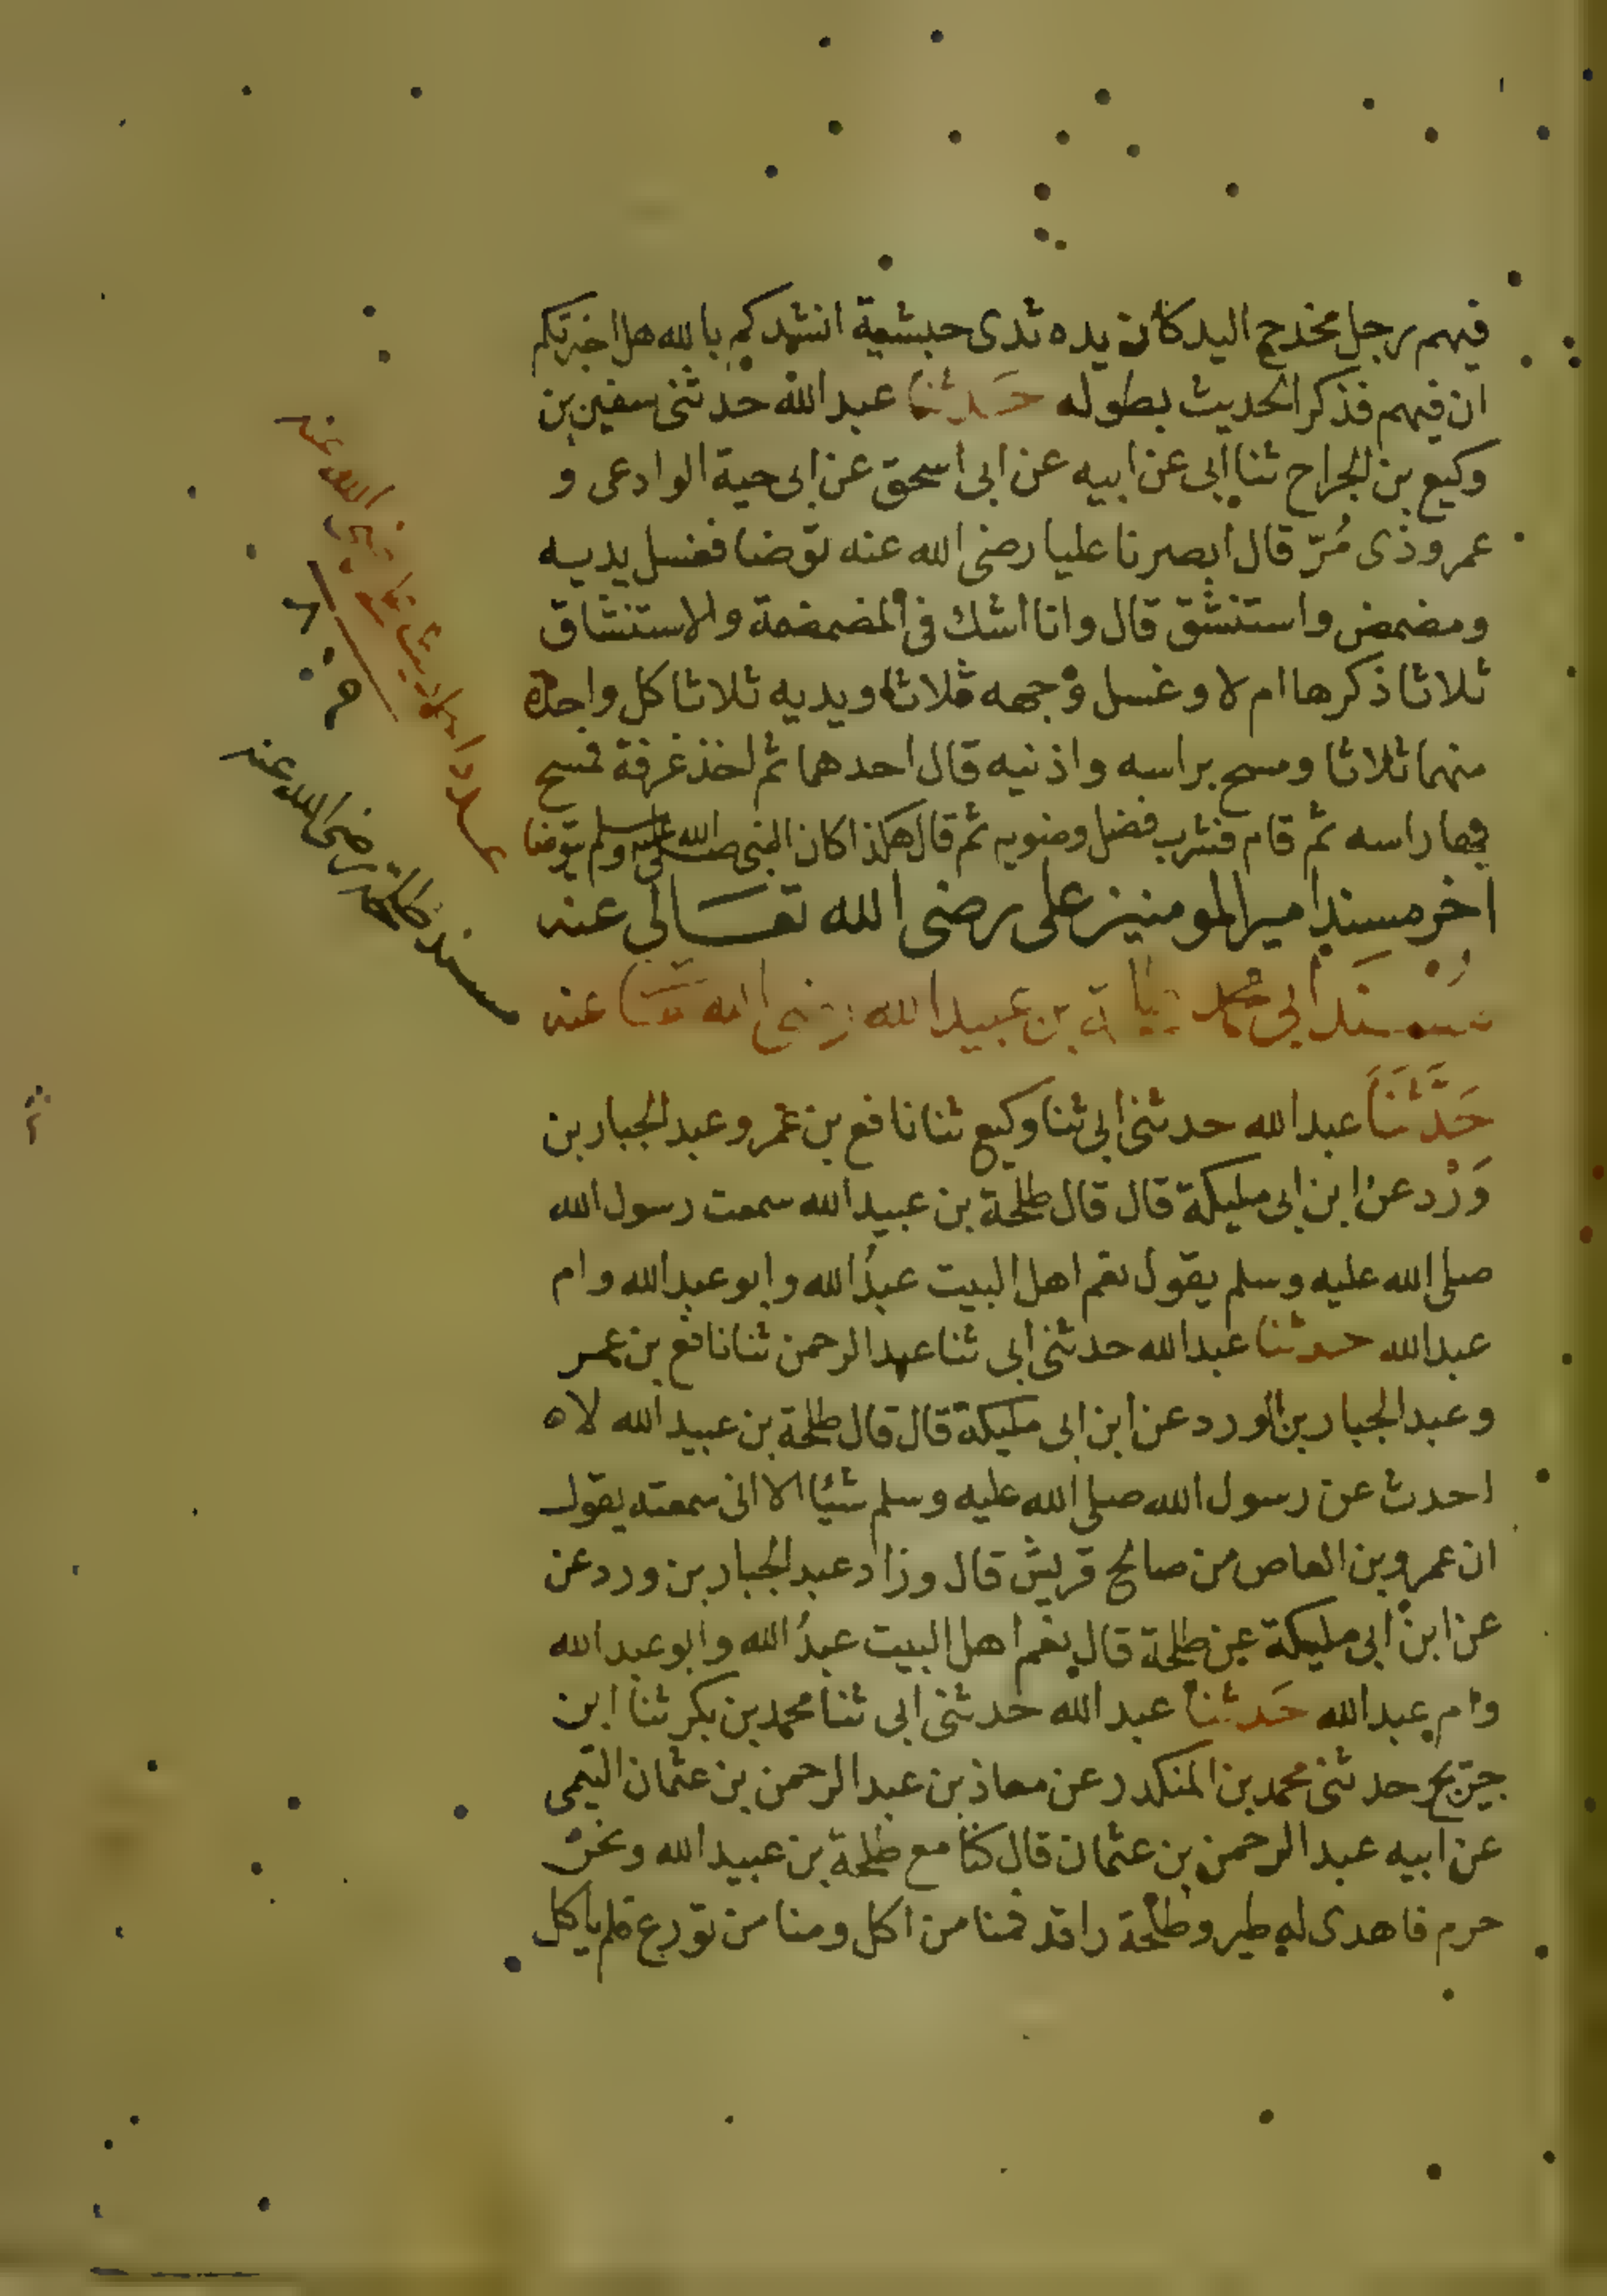 فيهم رجل مخدج اليد كان يده ثدى حبشية انشدكم بالله هل اخبرتكم
ان فيهم فذكر الحديث بطوله حدثنا عبد الله حدثنى سفين بن
وكيع بن الجراح ثنا ابى عن ابيه عن ابى اسحق عن ابى حية الوادعى و
عمرو ذى مُرّ قال ابصرنا عليا رضى الله عنه توضا فغسل يديه
ومضمض واستنشق قال وانا اشك فى المضمضة والاستنشاق
ثلاثا ذكرها ام لا وغسل وجهه ثلاثا ويديه ثلاثا كل واحدة
منهما ثلاثا ومسح براسه واذنيه قال احدهما ثم اخذ غرفة فمسح
بها راسه ثم قام فشرب فضل وضويه ثم قال هكذا كان النبى صلى الله عليه وسلم يتوضا
اخر مسند امير المومنين على رضى الله تعالى عنه
مسند ابى محمد طلحة بن عبيد الله رضى الله تعالى عنه
حَدَّثَنَا عبد الله حدثنى ابى ثنا وكيع ثنا نافع بن عمر وعبد الجبار بن
وَرْد عن ابن ابى مليكة قال قال طلحة بن عبيد الله سمعت رسول الله
صلى الله عليه وسلم يقول نعم اهل البيت عبدُ الله وابو عبد الله وام
عبد الله حدثنا عبد الله حدثنى ابى ثنا عبد الرحمن ثنا نافع بن عمر
وعبد الجبار بن الورد عن ابن ابى مليكة قال قال طلحة بن عبيد الله لا ه
احدث عن رسول الله صلى الله عليه وسلم شيئا الا انى سمعته يقول
ان عمرو بن العاص من صالح قريش قال وزاد عبد الجبار بن ورد عن
عن ابن ابى مليكة عن طلحة قال نعم اهل البيت عبدُ الله وابو عبد الله
وام عبد الله حَدثنا عبد الله حدثنى ابى ثنا محمد بن بكر ثنا ابن
جريج حدثنى محمد بن المنكدر عن معاذ بن عبد الرحمن بن عثمان التيمى
عن ابيه عبد الرحمن بن عثمان قال كنا مع طلحة بن عبيد الله ونحن
حرم فاهدى له طير وطلحة راقد فمنا من اكل ومنا من تورع فلم ياكل
رضى الله عنه
مسند طلحة رضى الله عنه